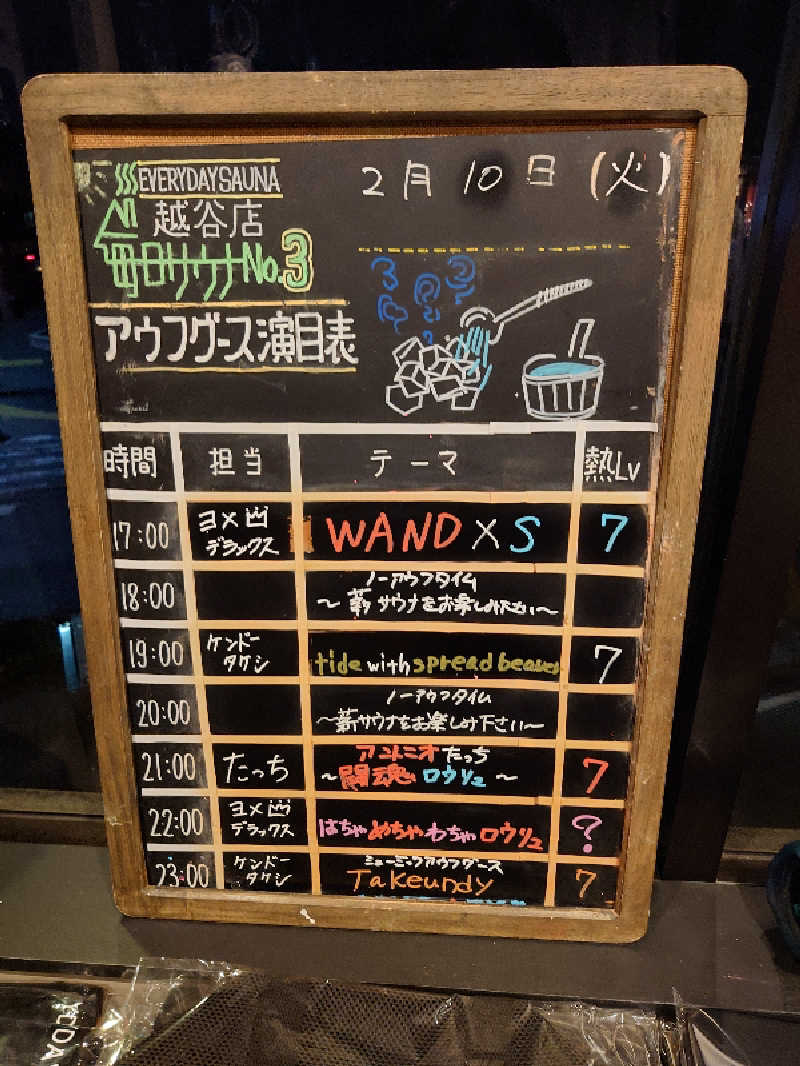 EVERYDAYSAUNA
越谷店
毎日サウナNo.3
2月10日(火)
アウフグース演目表
時間 担当 テーマ 熱Lv
17:00 ヨメ凶 デラックス WAND X S 7
18:00 ノーアウフタイム
~薪サウナをお楽しみ下さい~
19:00 ケンドー タケシ tide with spread beaver 7
20:00 ノーアウフタイム
~薪サウナをお楽しみ下さい~
21:00 たっち アントニオたっち
~闘魂ロウリュ~ 7
22:00 ヨメ凶 デラックス はちゃめちゃわちゃロウリュ ?
23:00 ケンドー タケシ ミュージックアウフグース
Takeundy 7